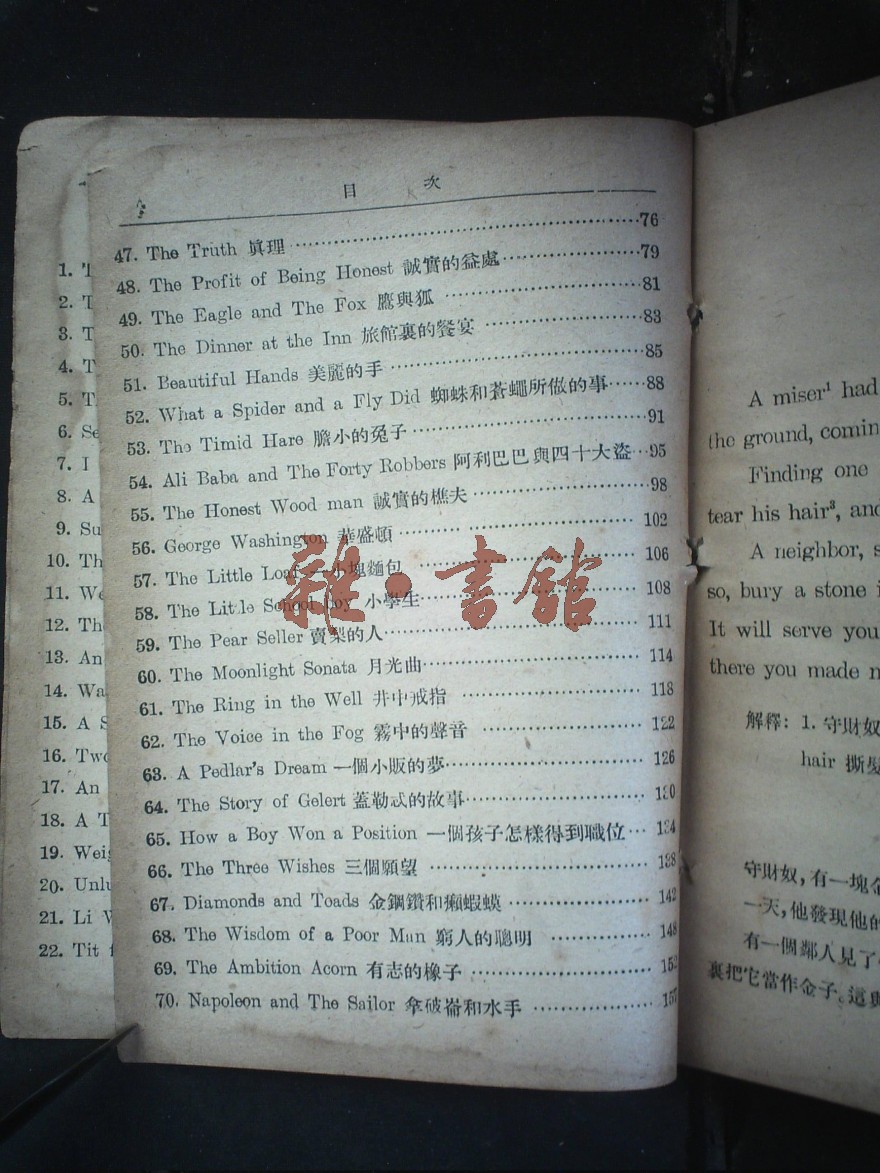 目 次
47. The Truth 眞理 76
48. The Profit of Being Honest 誠實的益處 79
49. The Eagle and The Fox 鷹與狐 81
50. The Dinner at the Inn 旅館裏的餐宴 83
51. Beautiful Hands 美麗的手 85
52. What a Spider and a Fly Did 蜘蛛和蒼蠅所做的事 88
53. The Timid Hare 膽小的兔子 91
54. Ali Baba and The Forty Robbers 阿利巴巴與四十大盜 95
55. The Honest Wood man 誠實的樵夫 98
56. George Washington 華盛頓 102
57. The Little Loaf 一小塊麵包 106
58. The Little School boy 小學生 108
59. The Pear Seller 賣梨的人 111
60. The Moonlight Sonata 月光曲 114
61. The Ring in the Well 井中戒指 118
62. The Voice in the Fog 霧中的聲音 122
63. A Pedlar's Dream 一個小販的夢 126
64. The Story of Gelert 蓋勒忒的故事 130
65. How a Boy Won a Position 一個孩子怎樣得到職位 134
66. The Three Wishes 三個願望 138
67. Diamonds and Toads 金鋼鑽和癩蝦蟆 142
68. The Wisdom of a Poor Man 窮人的聰明 148
69. The Ambition Acorn 有志的橡子 153
70. Napoleon and The Sailor 拿破崙和水手 157
雜·書館
1. T
2. T
3. T
4. T
5. T
6. Se
7. I
8. A
9. Su
10. Th
11. We
12. Th
13. An
14. Wa
15. A S
16. Two
17. An
18. A T
19. Weig
20. Unlu
21. Li W
22. Tit f
A miser¹ had
the ground, comin
Finding one
tear his hair³, and
A neighbor, s
so, bury a stone i
It will serve you
there you made n
解釋: 1. 守財奴
hair 撕髮
守財奴,有一塊金
一天,他發現他的
有一個鄰人見了
裏把它當作金子,這與